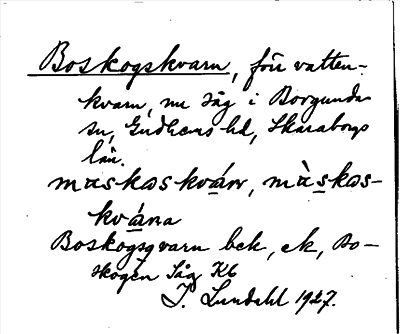 Boskogskvarn, förr vatten-
kvarn, nu såg i Borgunda
sn, Gudhems hd, Skaraborgs
län.
kvána
Boskogsqvarn bek, ek, Bo-
skogen Såg Kb
I. Lundahl 1927.